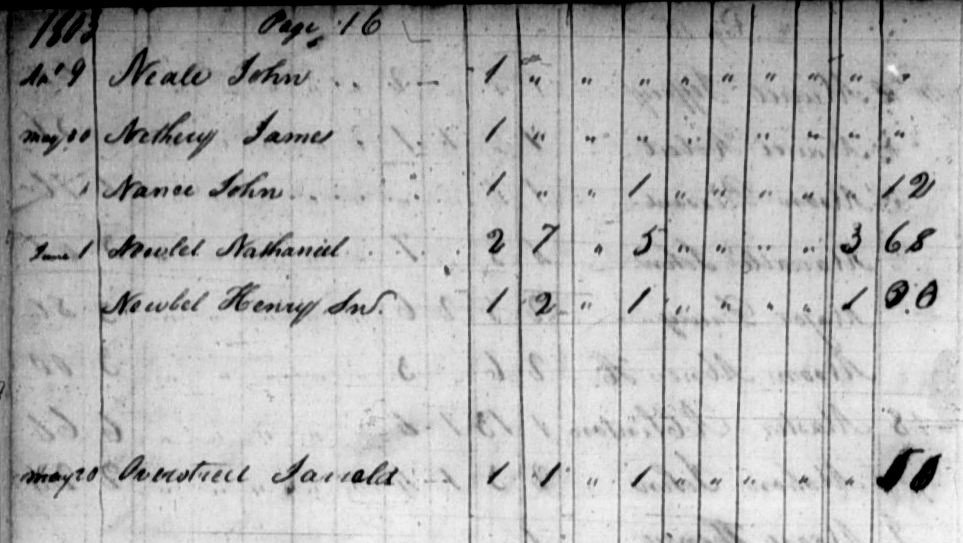 1803 Page 16
Apl 9 Neale John 1 " " " " " " " " "
May 20 Nethery James 1 " " " " " " " " "
1 Nance John 1 " " 1 " " " " 12
June 1 Nowlel Nathaniel 2 7 " 5 " " " " 3 68
Newbel Henry 1 2 " 1 " " " " 1
May 20 Overstreet Jarrald 1 1 " 1 " " " "